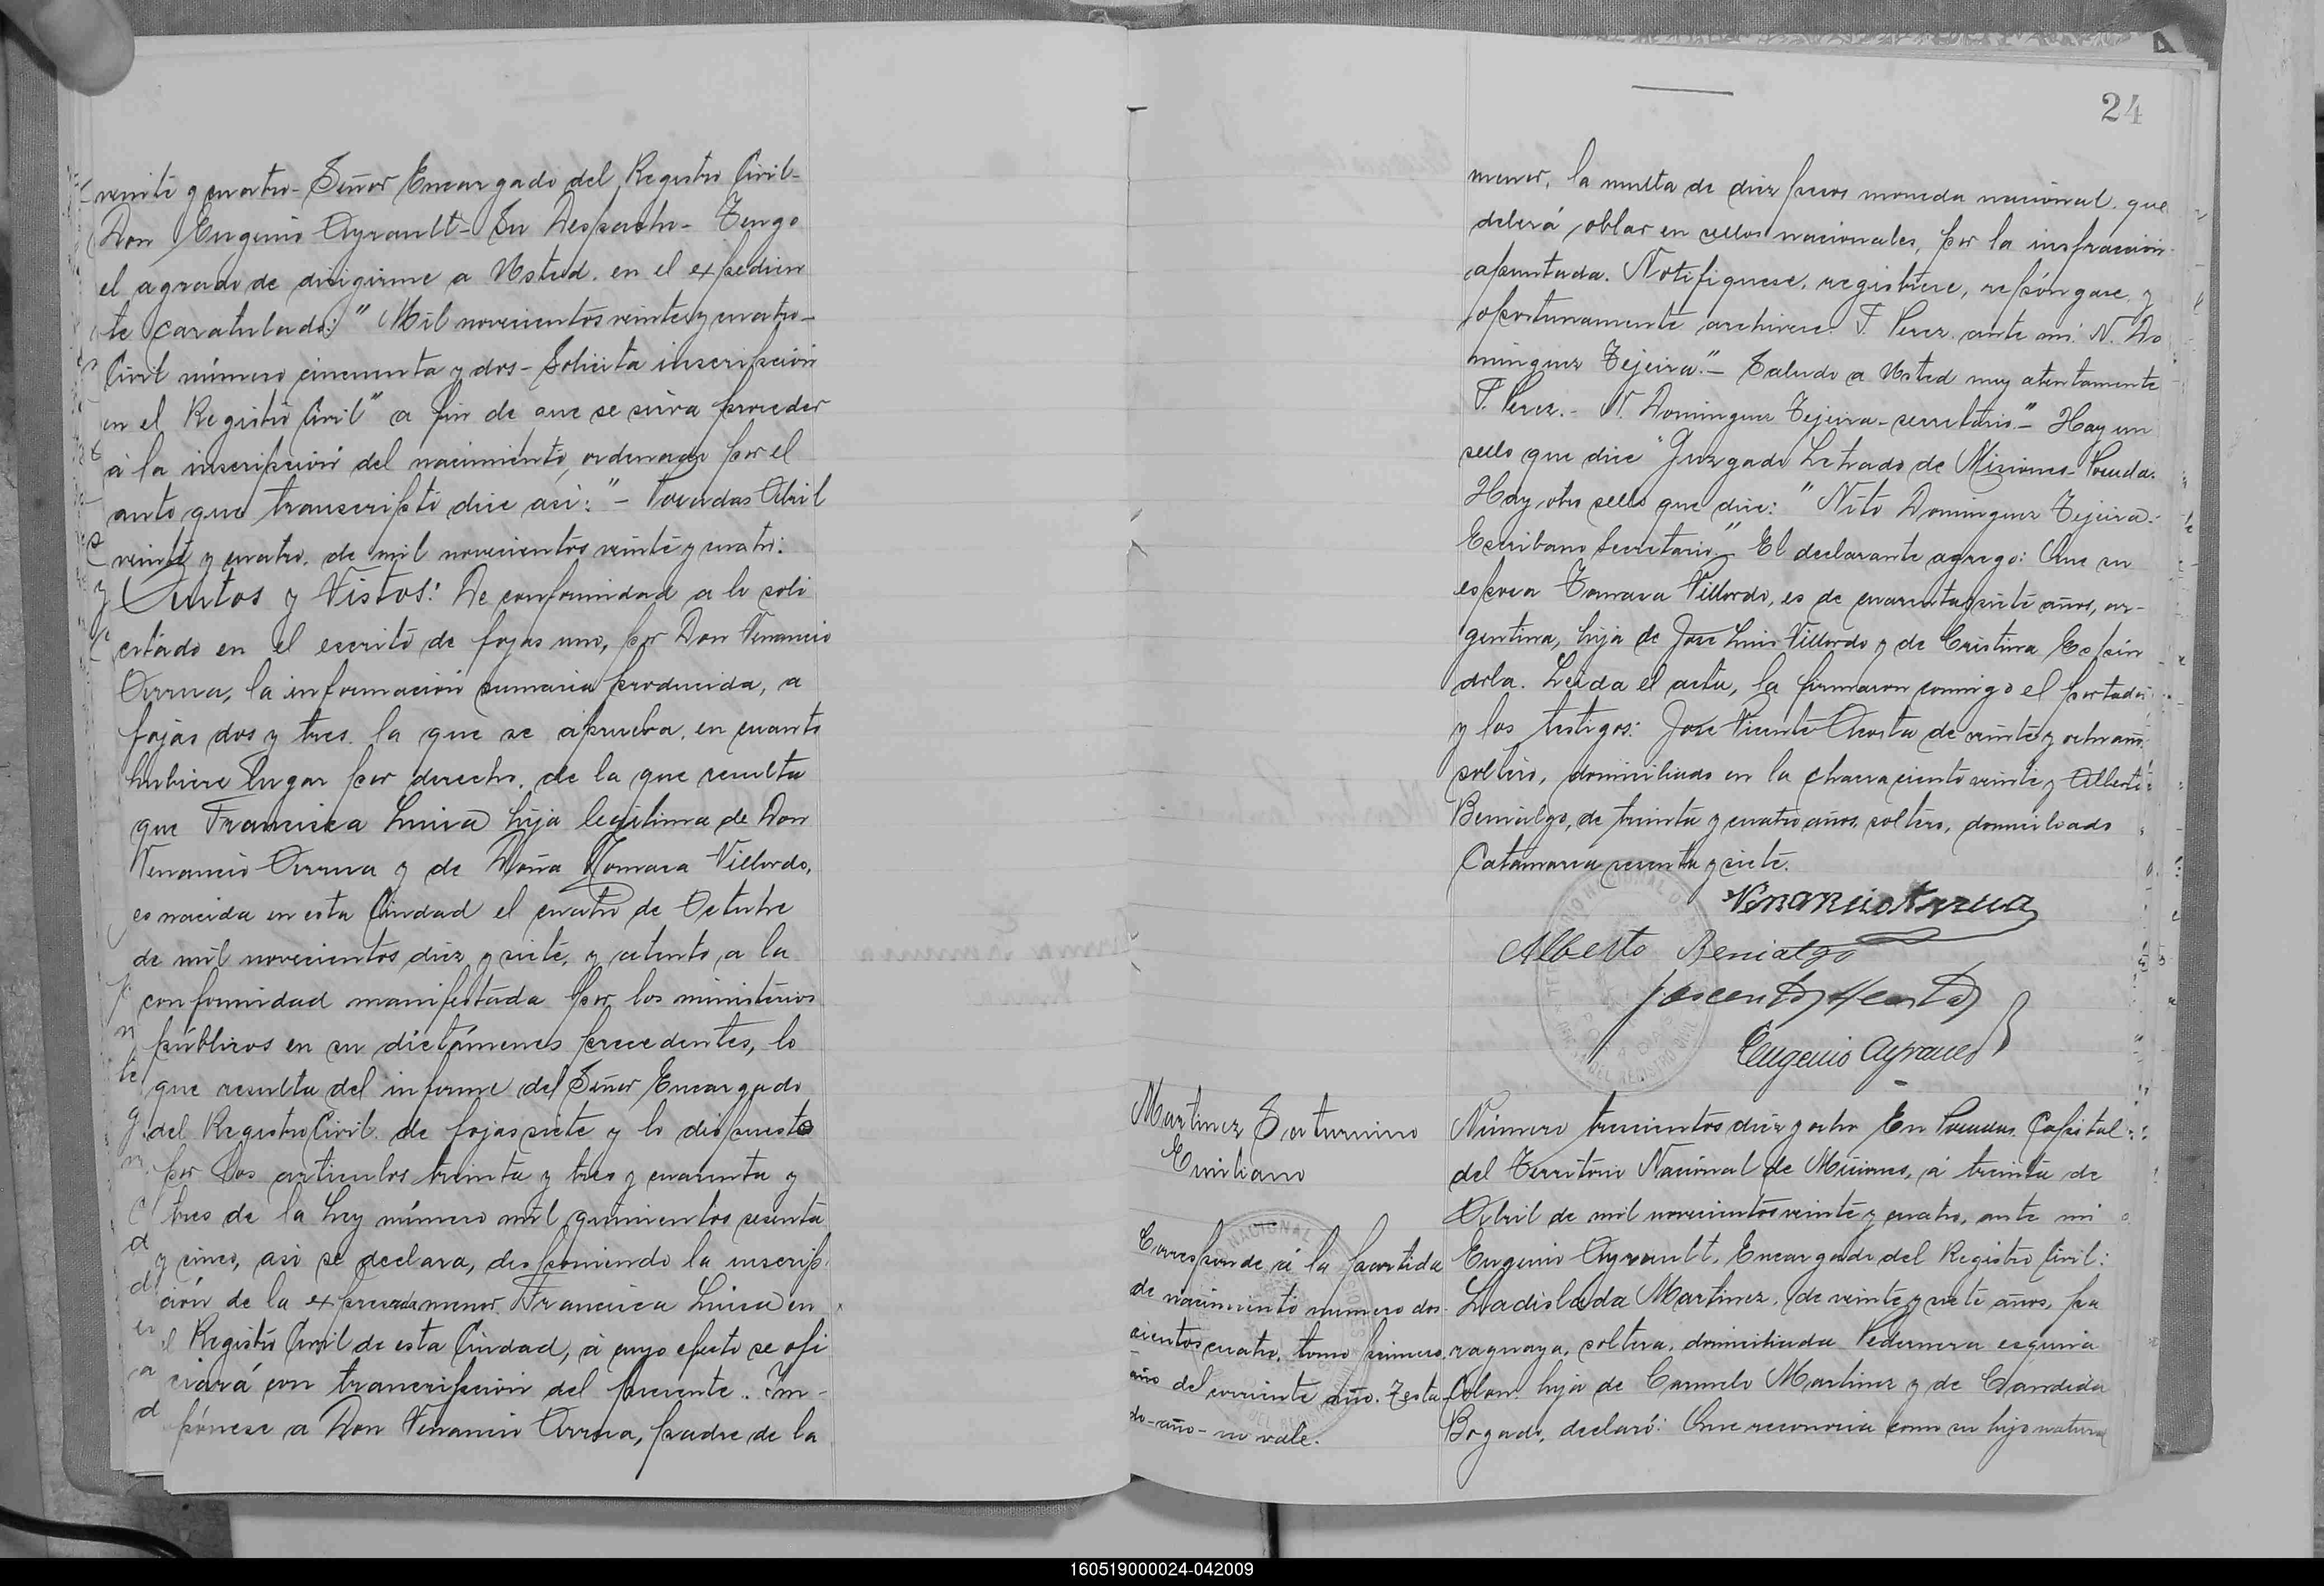 veinte y cuatro- Señor Encargado del Registro Civil-
Don Eugenio Ayrault- Su Despacho- Tengo
el agrado de dirigirme a Usted. en el expedien
te caratulado: " Mil novecientos veinte y cuatro-
Civil número cincuenta y dos- Solicita inscripción
en el Registro Civil" a fin de que se sirva proceder
á la inscripción del nacimiento, ordenada por el
auto que transcripto dice asi: "- Posadas Abril
veinte y cuatro. de mil novecientos veinte y cuatro:
Autos y Vistos: De conformidad a lo soli
citado en el escrito de fojas uno, por Don Venancio
Arrua, la información sumaria producida, a
fojas dos y tres. la que se aprueba. en cuanto
hubiere lugar por derecho. de la que resulta
que Francisca Luisa hija legítima de Don
Venancio Arrua y de Doña Tomasa Villordo,
es nacida en esta Ciudad el cuatro de Octubre
de mil novecientos diez y siete, y atento a la
conformidad manifestada por los ministerios
públicos en su dictámenes precedentes, lo
que resulta del informe del Señor Encargado
del Registro Civil. de fojas siete y lo dispuesto
por los articulos treinta y tres y cuarenta y
tres de la Ley número mil quinientos sesenta
y cinco, asi se declara, disponiendo la inscrip
ción de la expresada menor. Francisca Luisa en
el Registro Civil de esta Ciudad, á cuyo efecto se ofi
ciará con transcripción del presente. Im-
pónese a Don Venancio Arrua, padre de la
24
menor, la multa de diez pesos moneda nacional. que
deberá oblar en sellos nacionales, por la infracción
apuntada. Notifiquese, registrese, repóngase y
oportunamente archivese. T. Perez. ante mi: N. Do
minguez Tejeira."- Saludo a Usted muy atentamente
T. Perez.- N. Dominguez Tejeira- secretario"- Hay un
sello que dice "Juzgado Letrado de Misiones- Posadas.
Hay otro sello que dice: "Nito Dominguez Tejeira.-
Escribano Secretario"- El declarante agrego: Que su
esposa Tomasa Villordo, es de cuarenta y siete años, ar-
gentina, hija de Jose Luis Villordo y de Cristina Espin
dola. Leida el acta, la firmaron conmigo el portador
y los testigos: Jose Vicente Acosta de veinte y ocho años.
soltero, domiciliado en la chacra ciento veinte y Alberto
Benialgo, de treinta y cuatro años, soltero, domiciliado
Catamarca sesenta y siete.
Venancio Arrua
Alberto Benialgo
Eugenio Ayrault
Martinez Saturnino
Emiliano
Corresponde á la partida
de nacimiento numero dos-
cientos cuatro, tomo primero.
año del corriente año. Testa
do-año- no vale.
Número trescientos diez y ocho En Posadas. Capital
del Territorio Nacional de Misiones, á treinta de
Abril de mil novecientos veinte y cuatro, ante mi
Eugenio Ayrault. Encargado del Registro Civil:
Ladislada Martinez, de veinte y siete años, pa
raguaya, soltera, domiciliada Pedernera esquina
Colon. hija de Carmelo Martinez y de Candida
Bogado, declaró: Que reconocia como su hijo natural
160519000024-042009